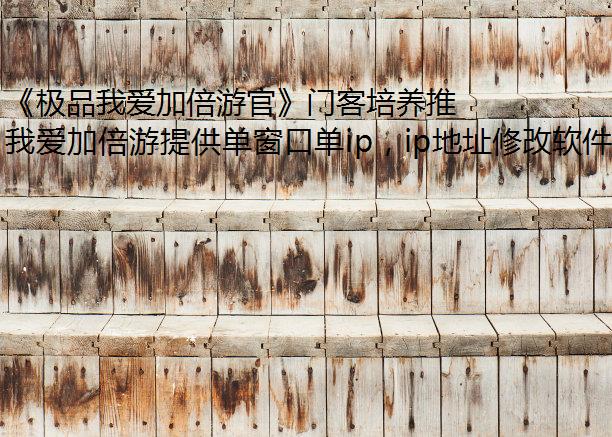 《极品我爱加倍游官》门客培养推
我爱加倍游提供单窗口单ip，ip地址修改软件